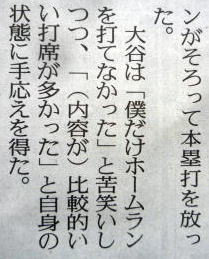 ンがそろって本塁打を放っ
た。
　大谷は「僕だけホームラン
を打てなかった」と苦笑いし
つつ、「（内容が）比較的い
い打席が多かった」と自身の
状態に手応えを得た。